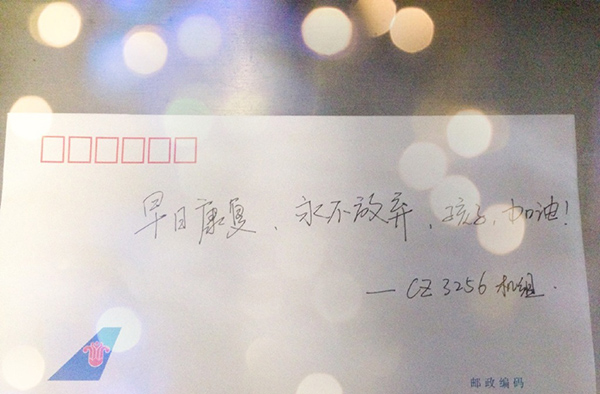 早日康复、永不放弃，孩子，加油！
—CZ3256 机组.
邮政编码